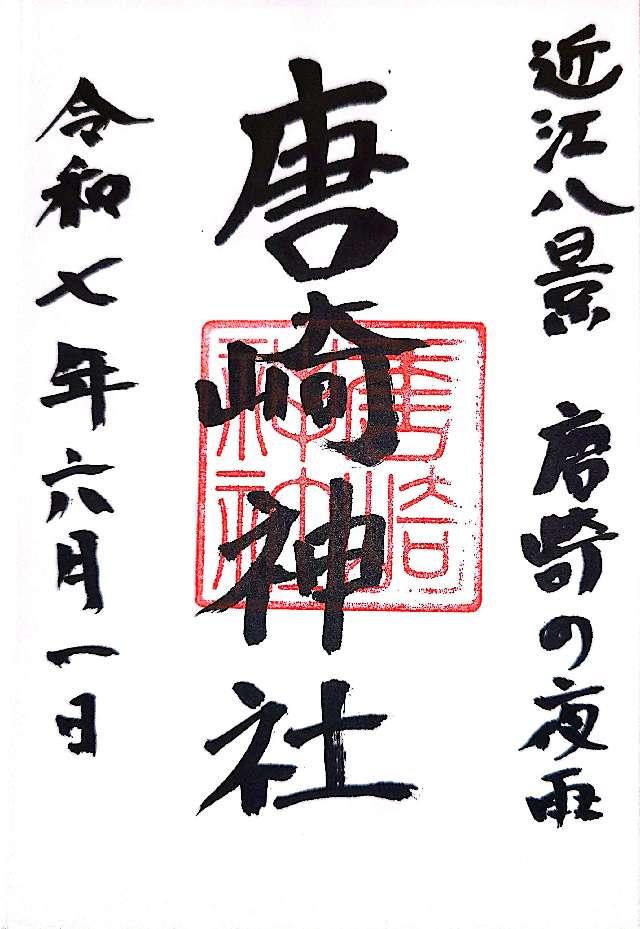 近江八景 唐崎の夜雨
唐崎神社
唐崎神社
令和七年六月一日